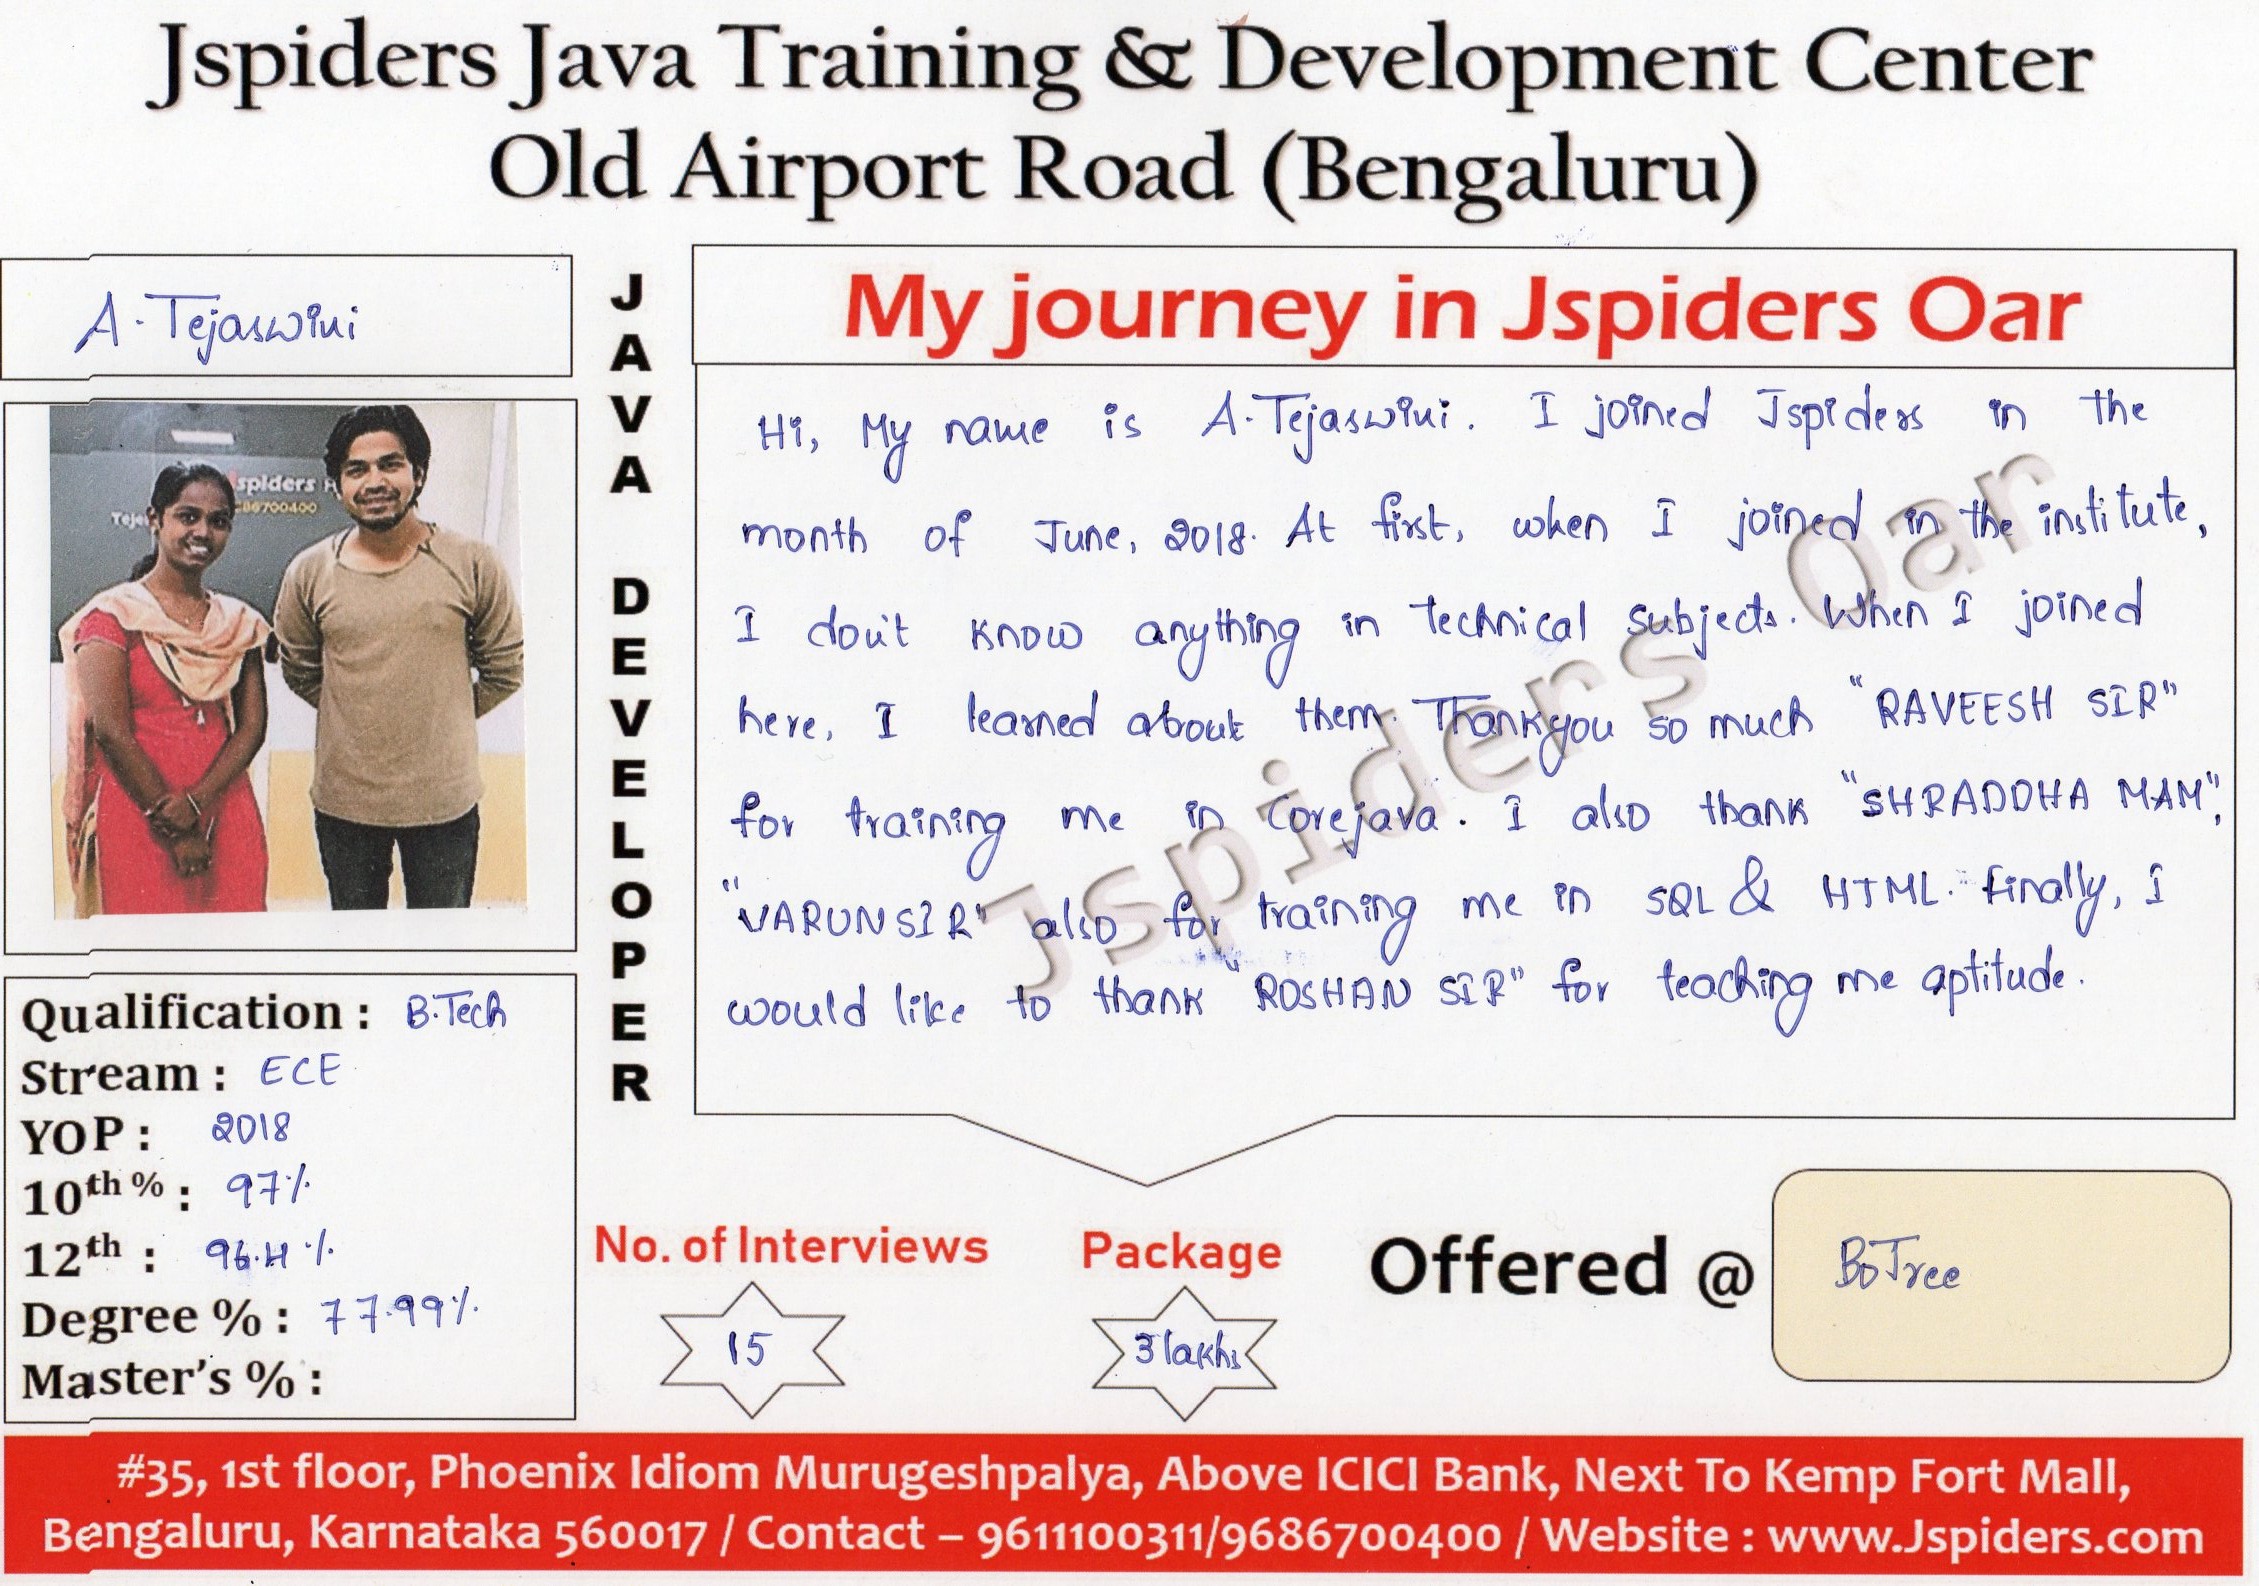 Jspiders Java Training & Development Center
Old Airport Road (Bengaluru)
A. Tejaswini
spiders
86700400
Teje
Qualification : B.Tech
Stream : ECE
YOP : 2018
10th % : 97%
12th : 96.4 %
Degree % : 77.99%
Master's % :
JAVA DEVELOPER
My journey in Jspiders Oar
Hi, My name is A. Tejaswini. I joined Jspiders in the
month of June, 2018. At first, when I joined in the institute,
I don't know anything in technical subjects. When I joined
here, I learned about them. Thankyou so much "RAVEESH SIR"
for training me in Corejava. I also thank "SHRADDHA MAM",
"VARUN SIR" also for training me in SQL & HTML. Finally, I
would like to thank "ROSHAN SIR" for teaching me aptitude.
Jspiders Oar
No. of Interviews
15
Package
3 lakhs
Offered @ BoTree
#35, 1st floor, Phoenix Idiom Murugeshpalya, Above ICICI Bank, Next To Kemp Fort Mall,
Bengaluru, Karnataka 560017 / Contact – 9611100311/9686700400 / Website : www.Jspiders.com